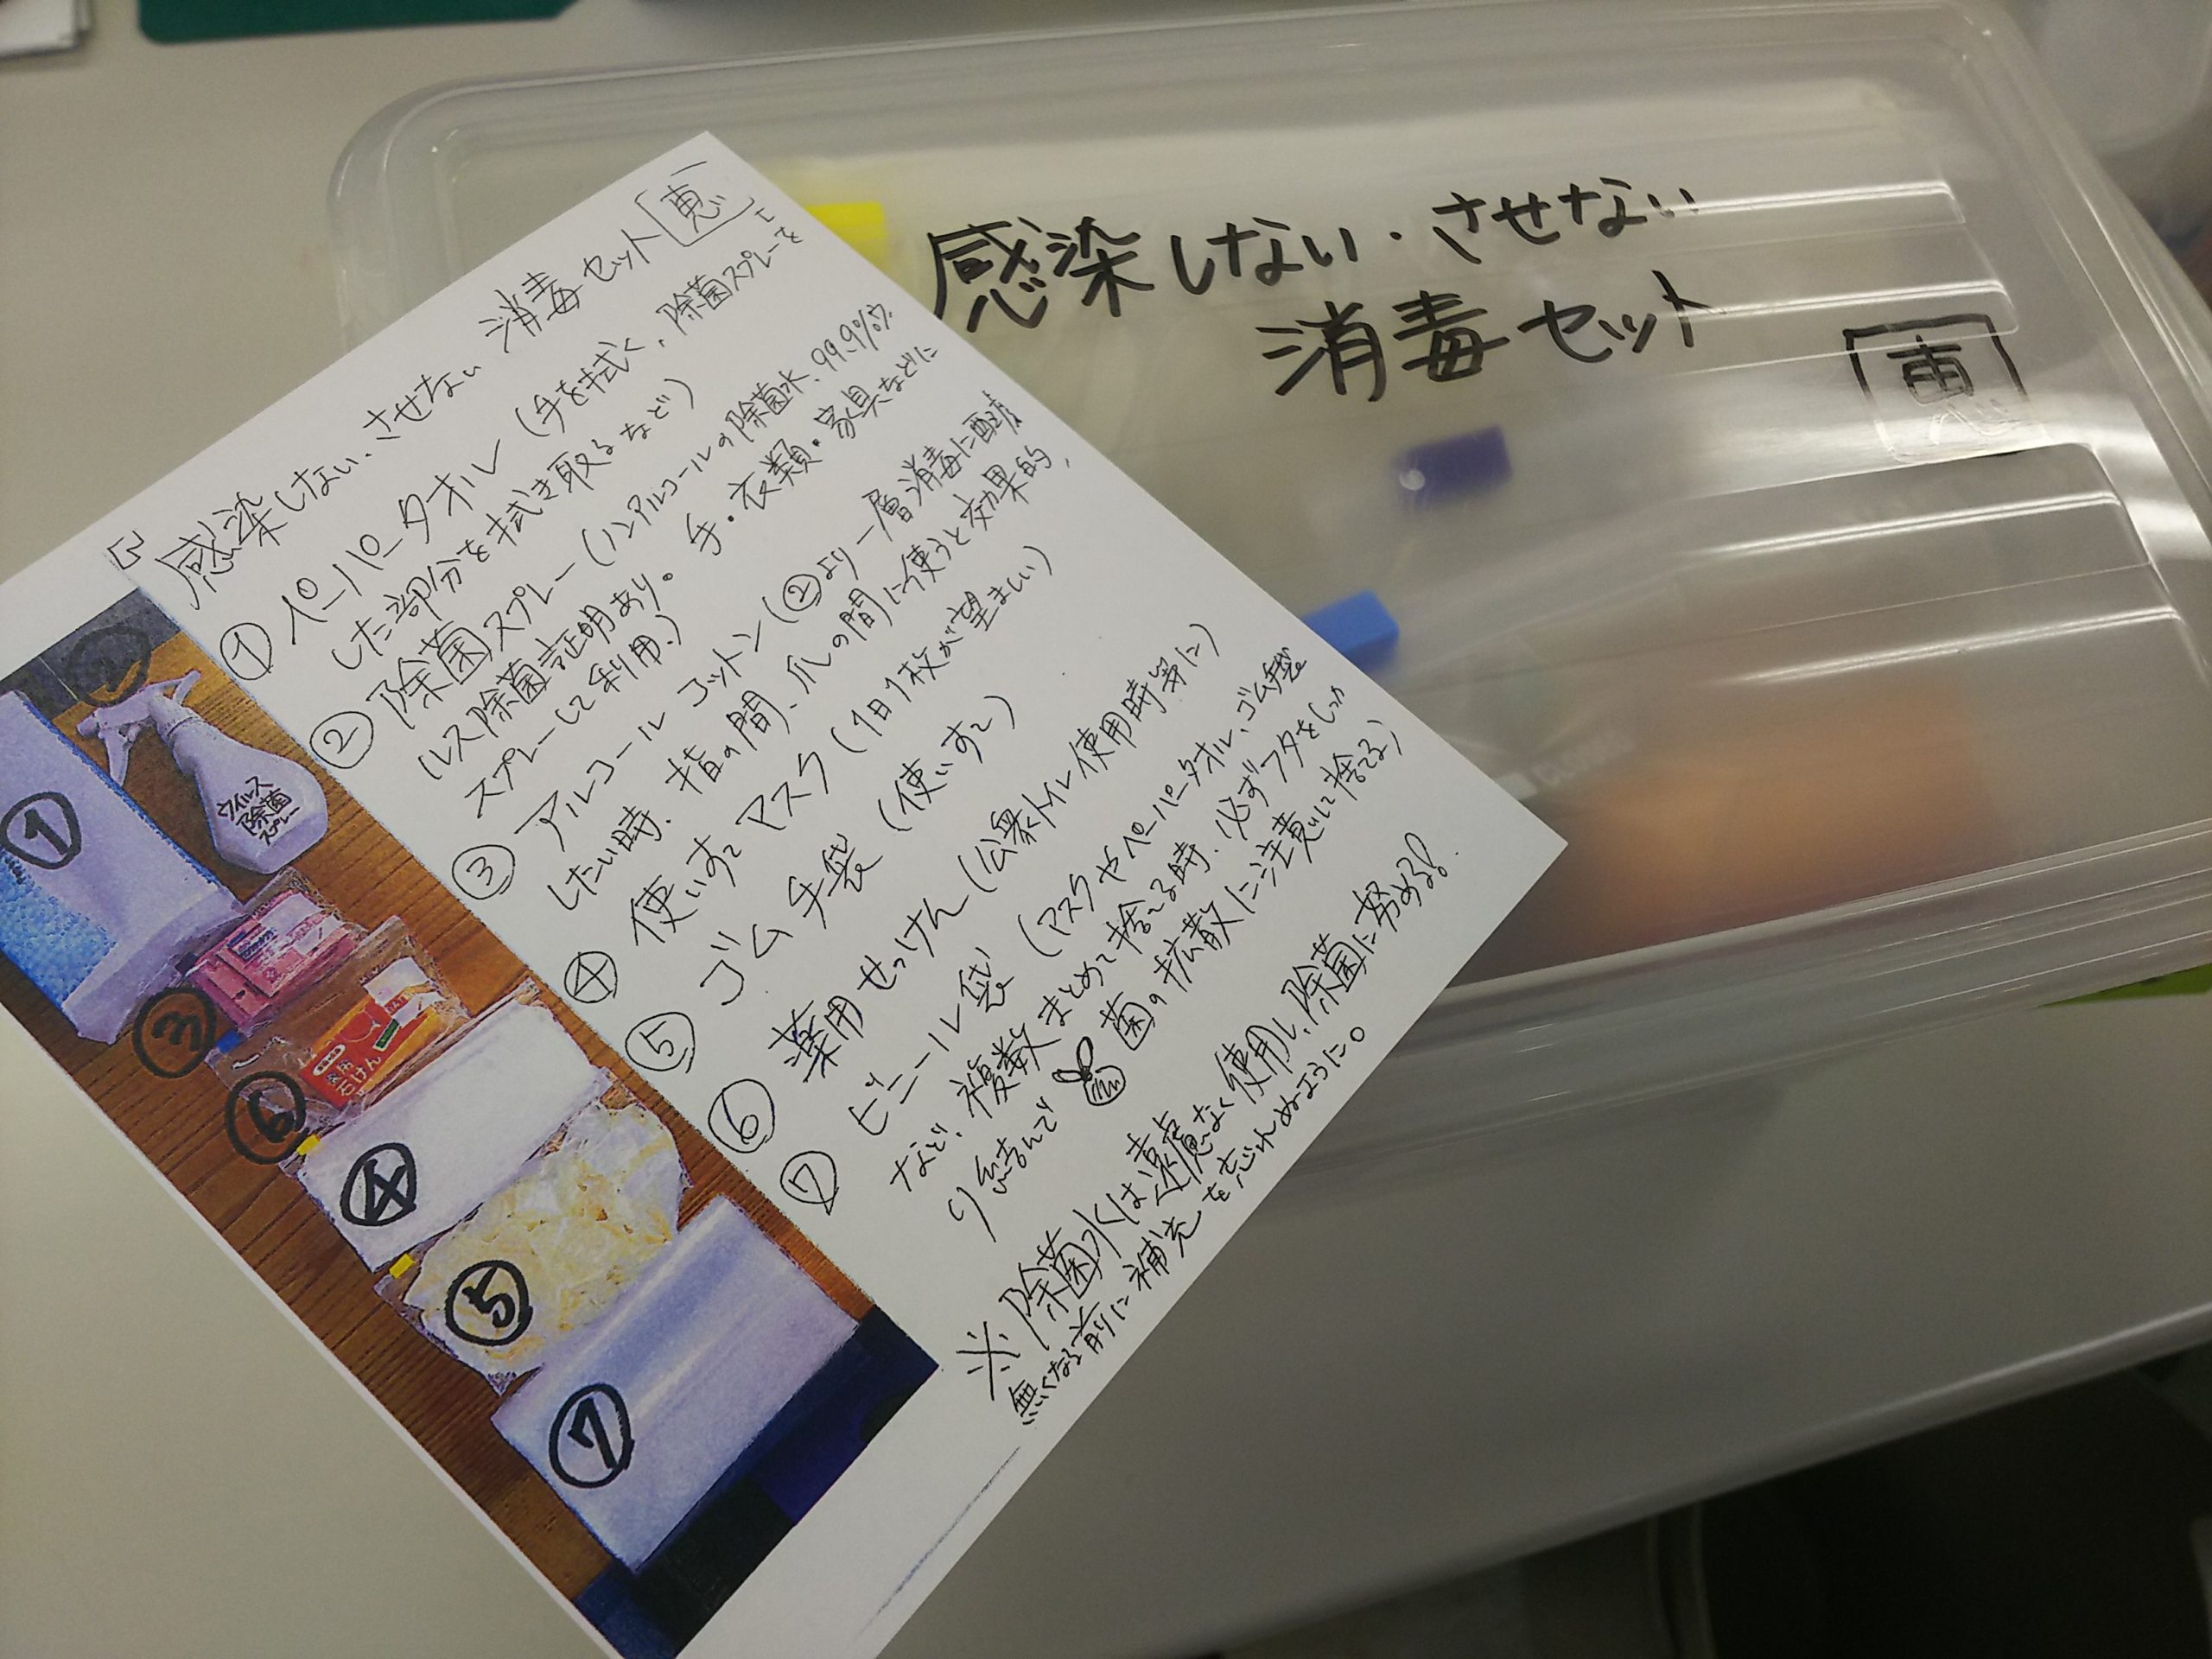 『感染しない、させない 消毒セット 恵』
① ペーパータオル (手を拭く、除菌スプレーを
した部分を拭き取るなど)
② 除菌スプレー (ノンアルコールの除菌水、99.9%ウ
ルス除菌証明あり。手・衣類・家具などに
スプレーして利用。)
③ アルコール コットン (②より一層消毒に配慮
したい時、指の間、爪の間に使うと効果的、
④ 使いすて マスク (1日1枚が望ましい)
⑤ ゴム手袋 (使いすて)
⑥ 薬用せっけん (公衆トイレ使用時等に)
⑦ ビニール袋 (マスクやペーパータオル、ゴム手袋
など、複数まとめて捨てる時、必ずフタをしっか
り結んで 菌の拡散に注意して捨てる)
※ 除菌水は遠慮なく使用し、除菌に努める!
無くなる前に補充を忘れぬように。
①
②
ウイルス
除菌
スプレー
③
薬用
石けん
⑥
④
⑤
⑦
感染しない・させない
消毒セット
恵